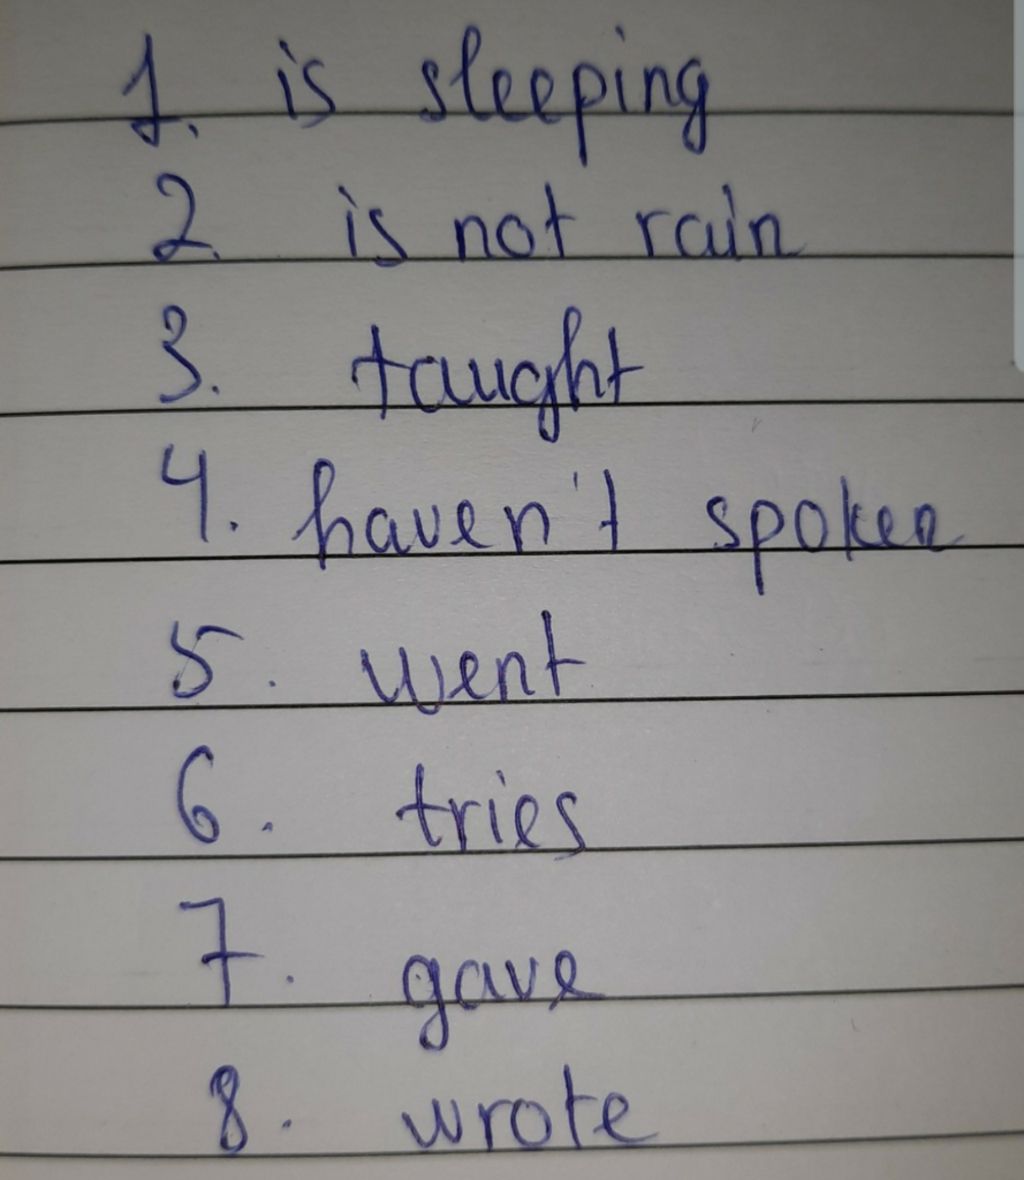 1. is sleeping
2. is not rain
3. taught
4. haven't spoken
5. went
6. tries
7. gave
8. wrote